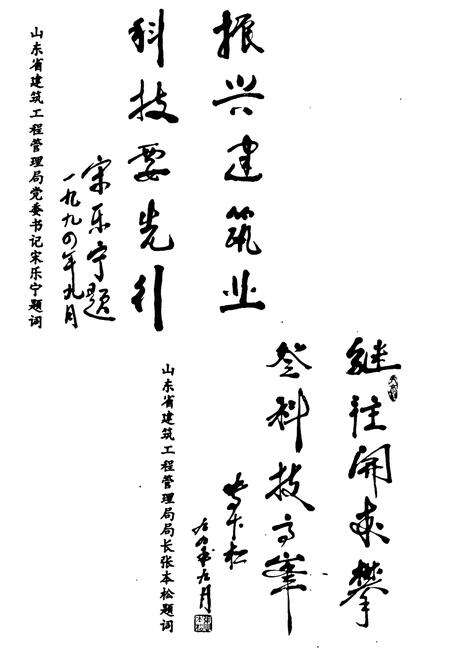 振兴建筑业
科技要先行
宋乐宁题
一九九〇年九月
山东省建筑工程管理局党委书记宋乐宁题词
继往开来攀
登科技高峰
张本松
九〇年九月
山东省建筑工程管理局局长张本松题词